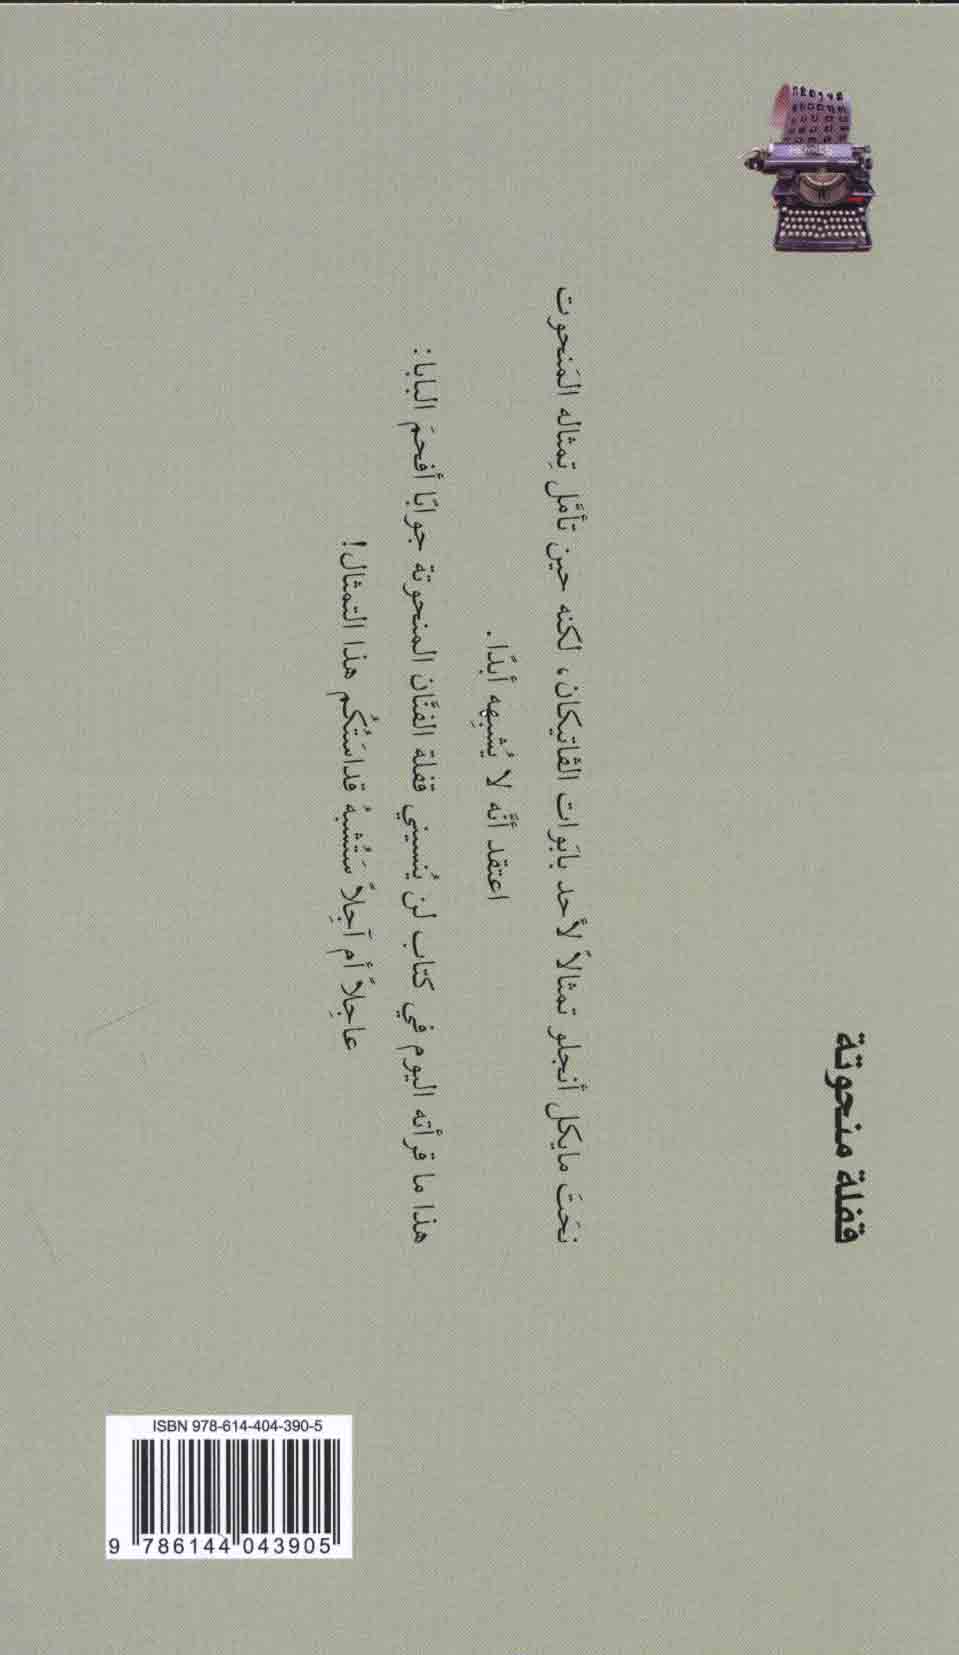 قفلة منحوتة
نحَتَ مايكل أنجلو تمثالاً لأحد بابَوات الڤاتيكان، لكنه حين تأمَّل تِمثاله المَنحوت
اعتقد أنَّه لا يُشبِهه أبدًا.
هذا ما قرأته اليوم في كتاب لن يُنسيني قفلة الفنَّان المنحوتة جوابًا أفحمَ البابا:
عاجِلاً أم آجِلاً سَتُشبهُ قداستُكُم هذا التمثال!
ISBN 978-614-404-390-5
9 786144 043905